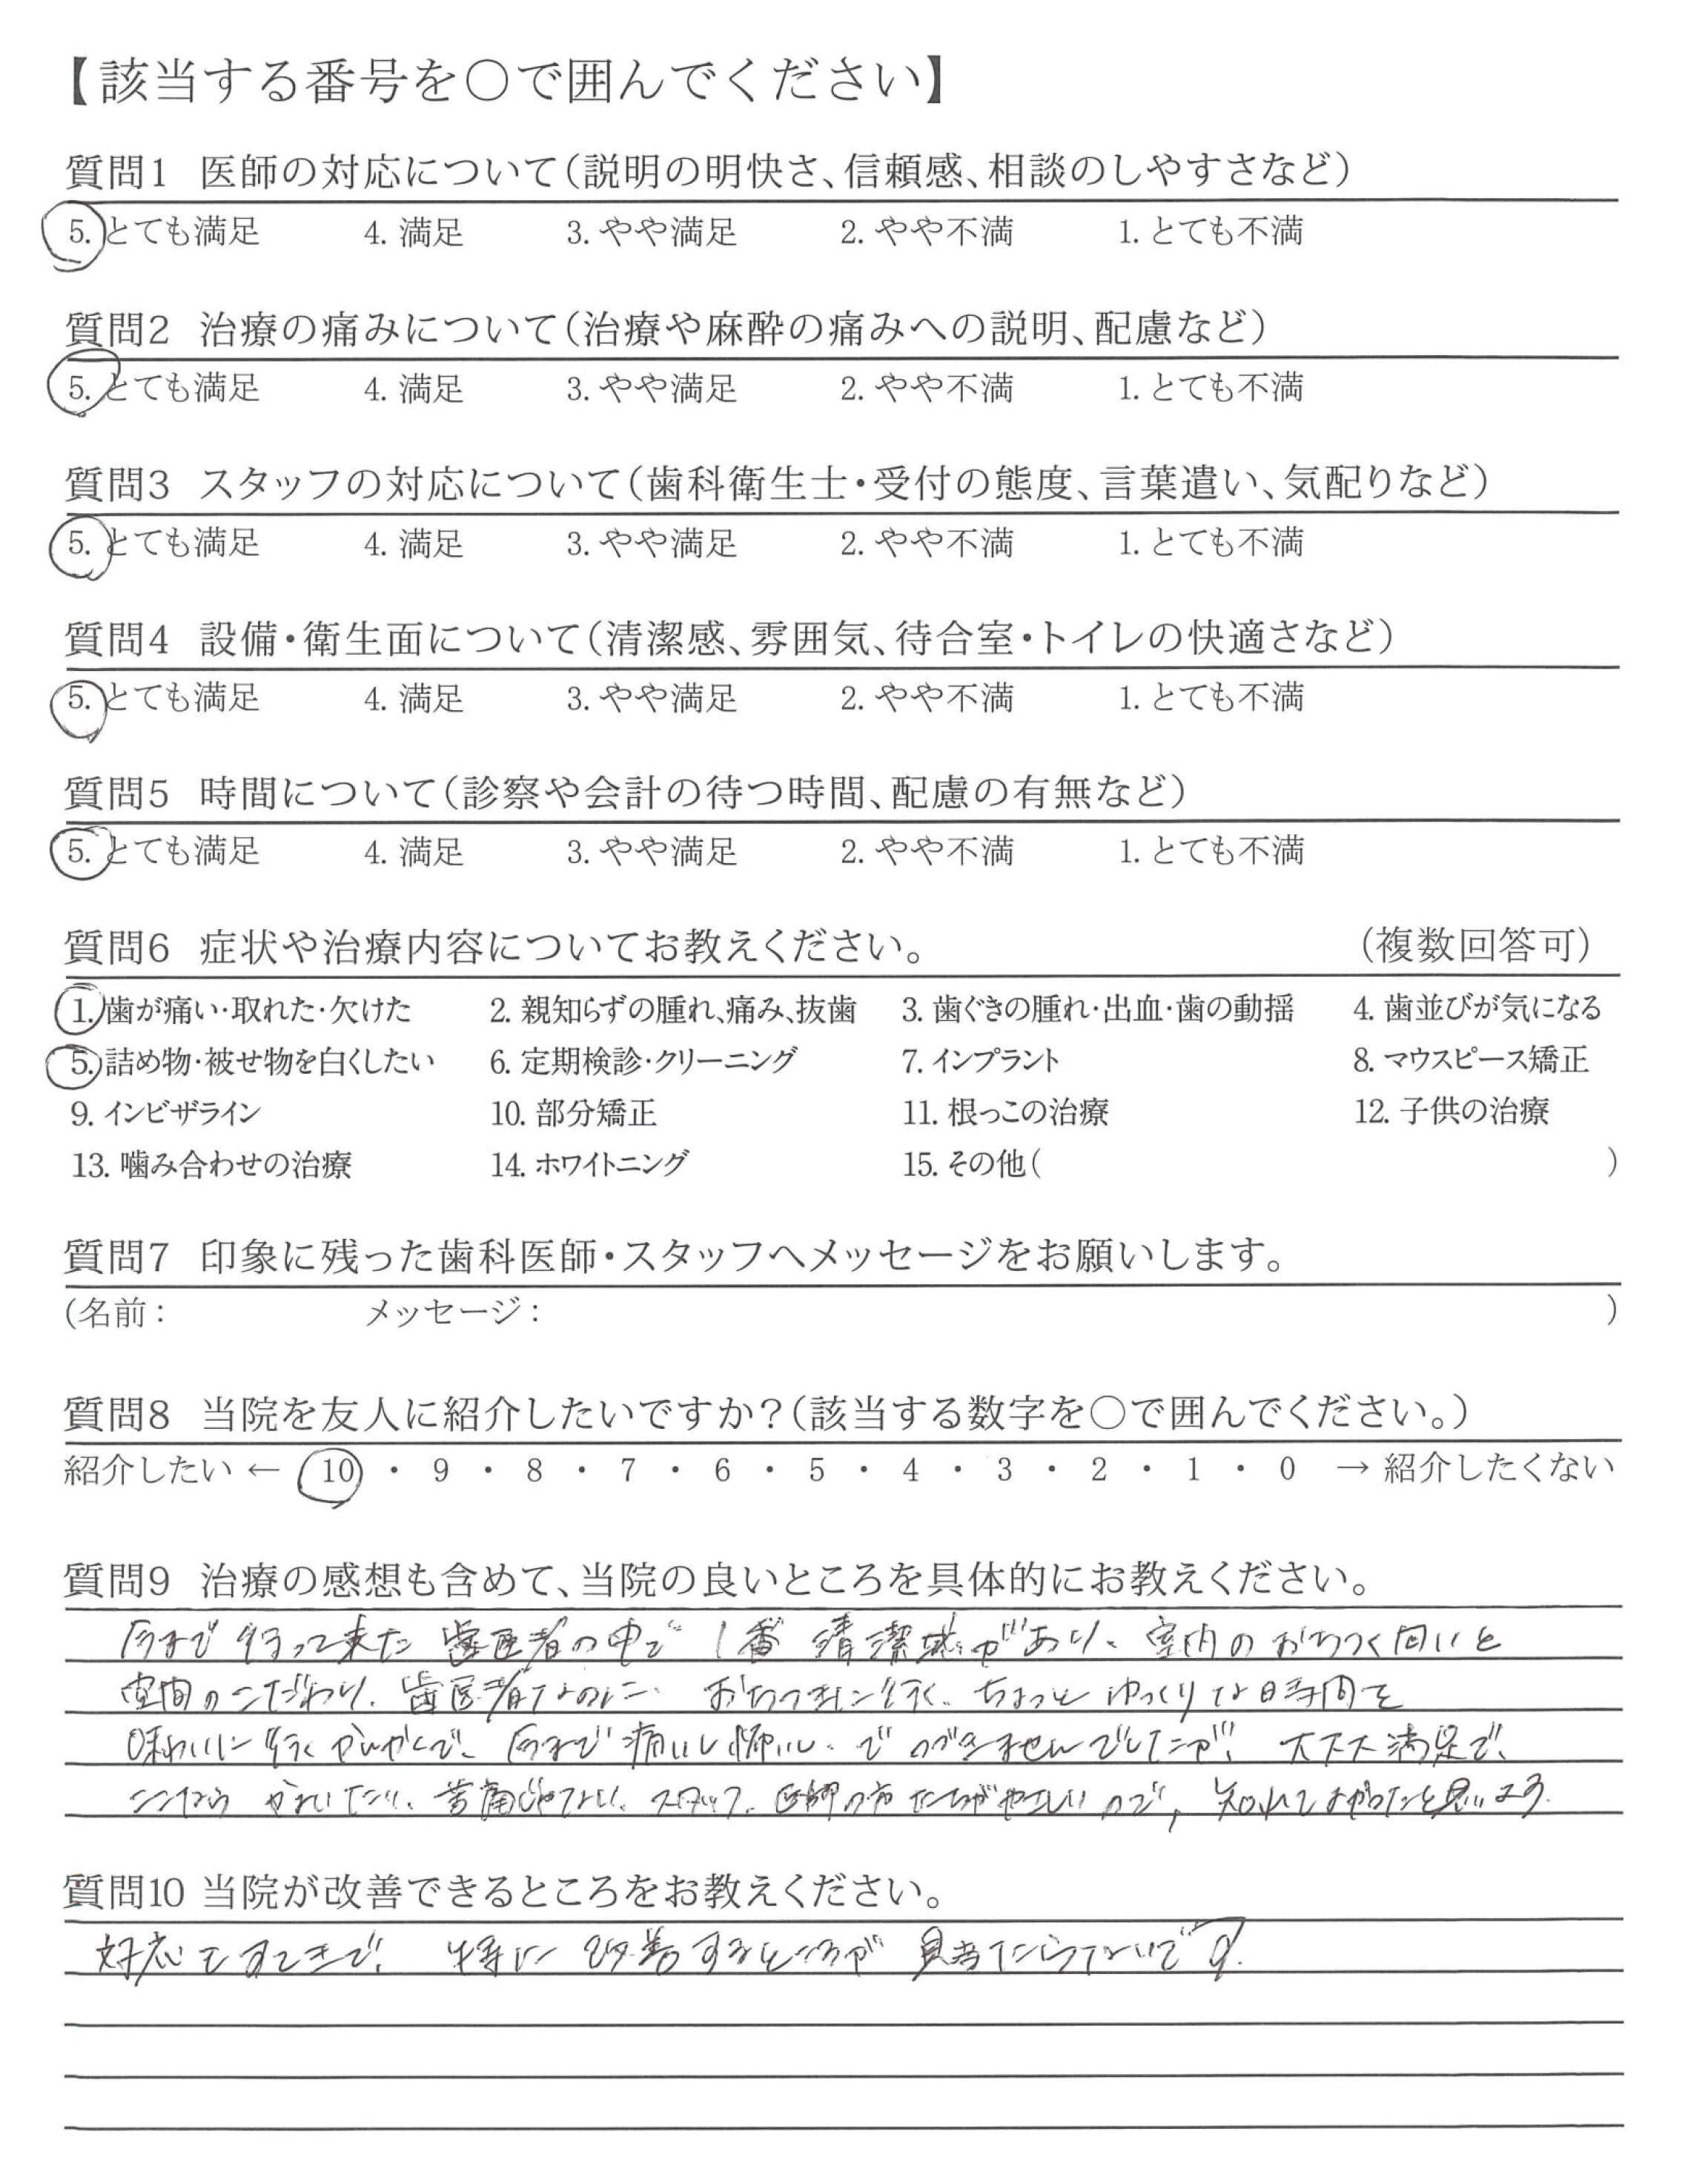 【該当する番号を○で囲んでください】
質問1 医師の対応について（説明の明快さ、信頼感、相談のしやすさなど）
5. とても満足 4. 満足 3. やや満足 2. やや不満 1. とても不満
質問2 治療の痛みについて（治療や麻酔の痛みへの説明、配慮など）
5. とても満足 4. 満足 3. やや満足 2. やや不満 1. とても不満
質問3 スタッフの対応について（歯科衛生士・受付の態度、言葉遣い、気配りなど）
5. とても満足 4. 満足 3. やや満足 2. やや不満 1. とても不満
質問4 設備・衛生面について（清潔感、雰囲気、待合室・トイレの快適さなど）
5. とても満足 4. 満足 3. やや満足 2. やや不満 1. とても不満
質問5 時間について（診察や会計の待つ時間、配慮の有無など）
5. とても満足 4. 満足 3. やや満足 2. やや不満 1. とても不満
質問6 症状や治療内容についてお教えください。 （複数回答可）
1. 歯が痛い・取れた・欠けた 2. 親知らずの腫れ、痛み、抜歯 3. 歯ぐきの腫れ・出血・歯の動揺 4. 歯並びが気になる
5. 詰め物・被せ物を白くしたい 6. 定期検診・クリーニング 7. インプラント 8. マウスピース矯正
9. インビザライン 10. 部分矯正 11. 根っこの治療 12. 子供の治療
13. 噛み合わせの治療 14. ホワイトニング 15. その他（ ）
質問7 印象に残った歯科医師・スタッフへメッセージをお願いします。
（名前： メッセージ： ）
質問8 当院を友人に紹介したいですか？（該当する数字を○で囲んでください。）
紹介したい ← 10 ・ 9 ・ 8 ・ 7 ・ 6 ・ 5 ・ 4 ・ 3 ・ 2 ・ 1 ・ 0 → 紹介したくない
質問9 治療の感想も含めて、当院の良いところを具体的にお教えください。
今まで行って来た歯医者の中で1番清潔感があり、室内のおちつく匂いと
空間のこだわり、歯医者なのに おちつきに行く、ちょっとゆっくりな時間を
味わいに行くかんかくで、今まで痛いし怖いし 大大大満足で、
ここなら 苦痛じゃない、スタッフ、医師の方たちがやさしいので、知れてよかったと思います。
質問10 当院が改善できるところをお教えください。
対応もすてきで、特に改善するところが見当たらないです。